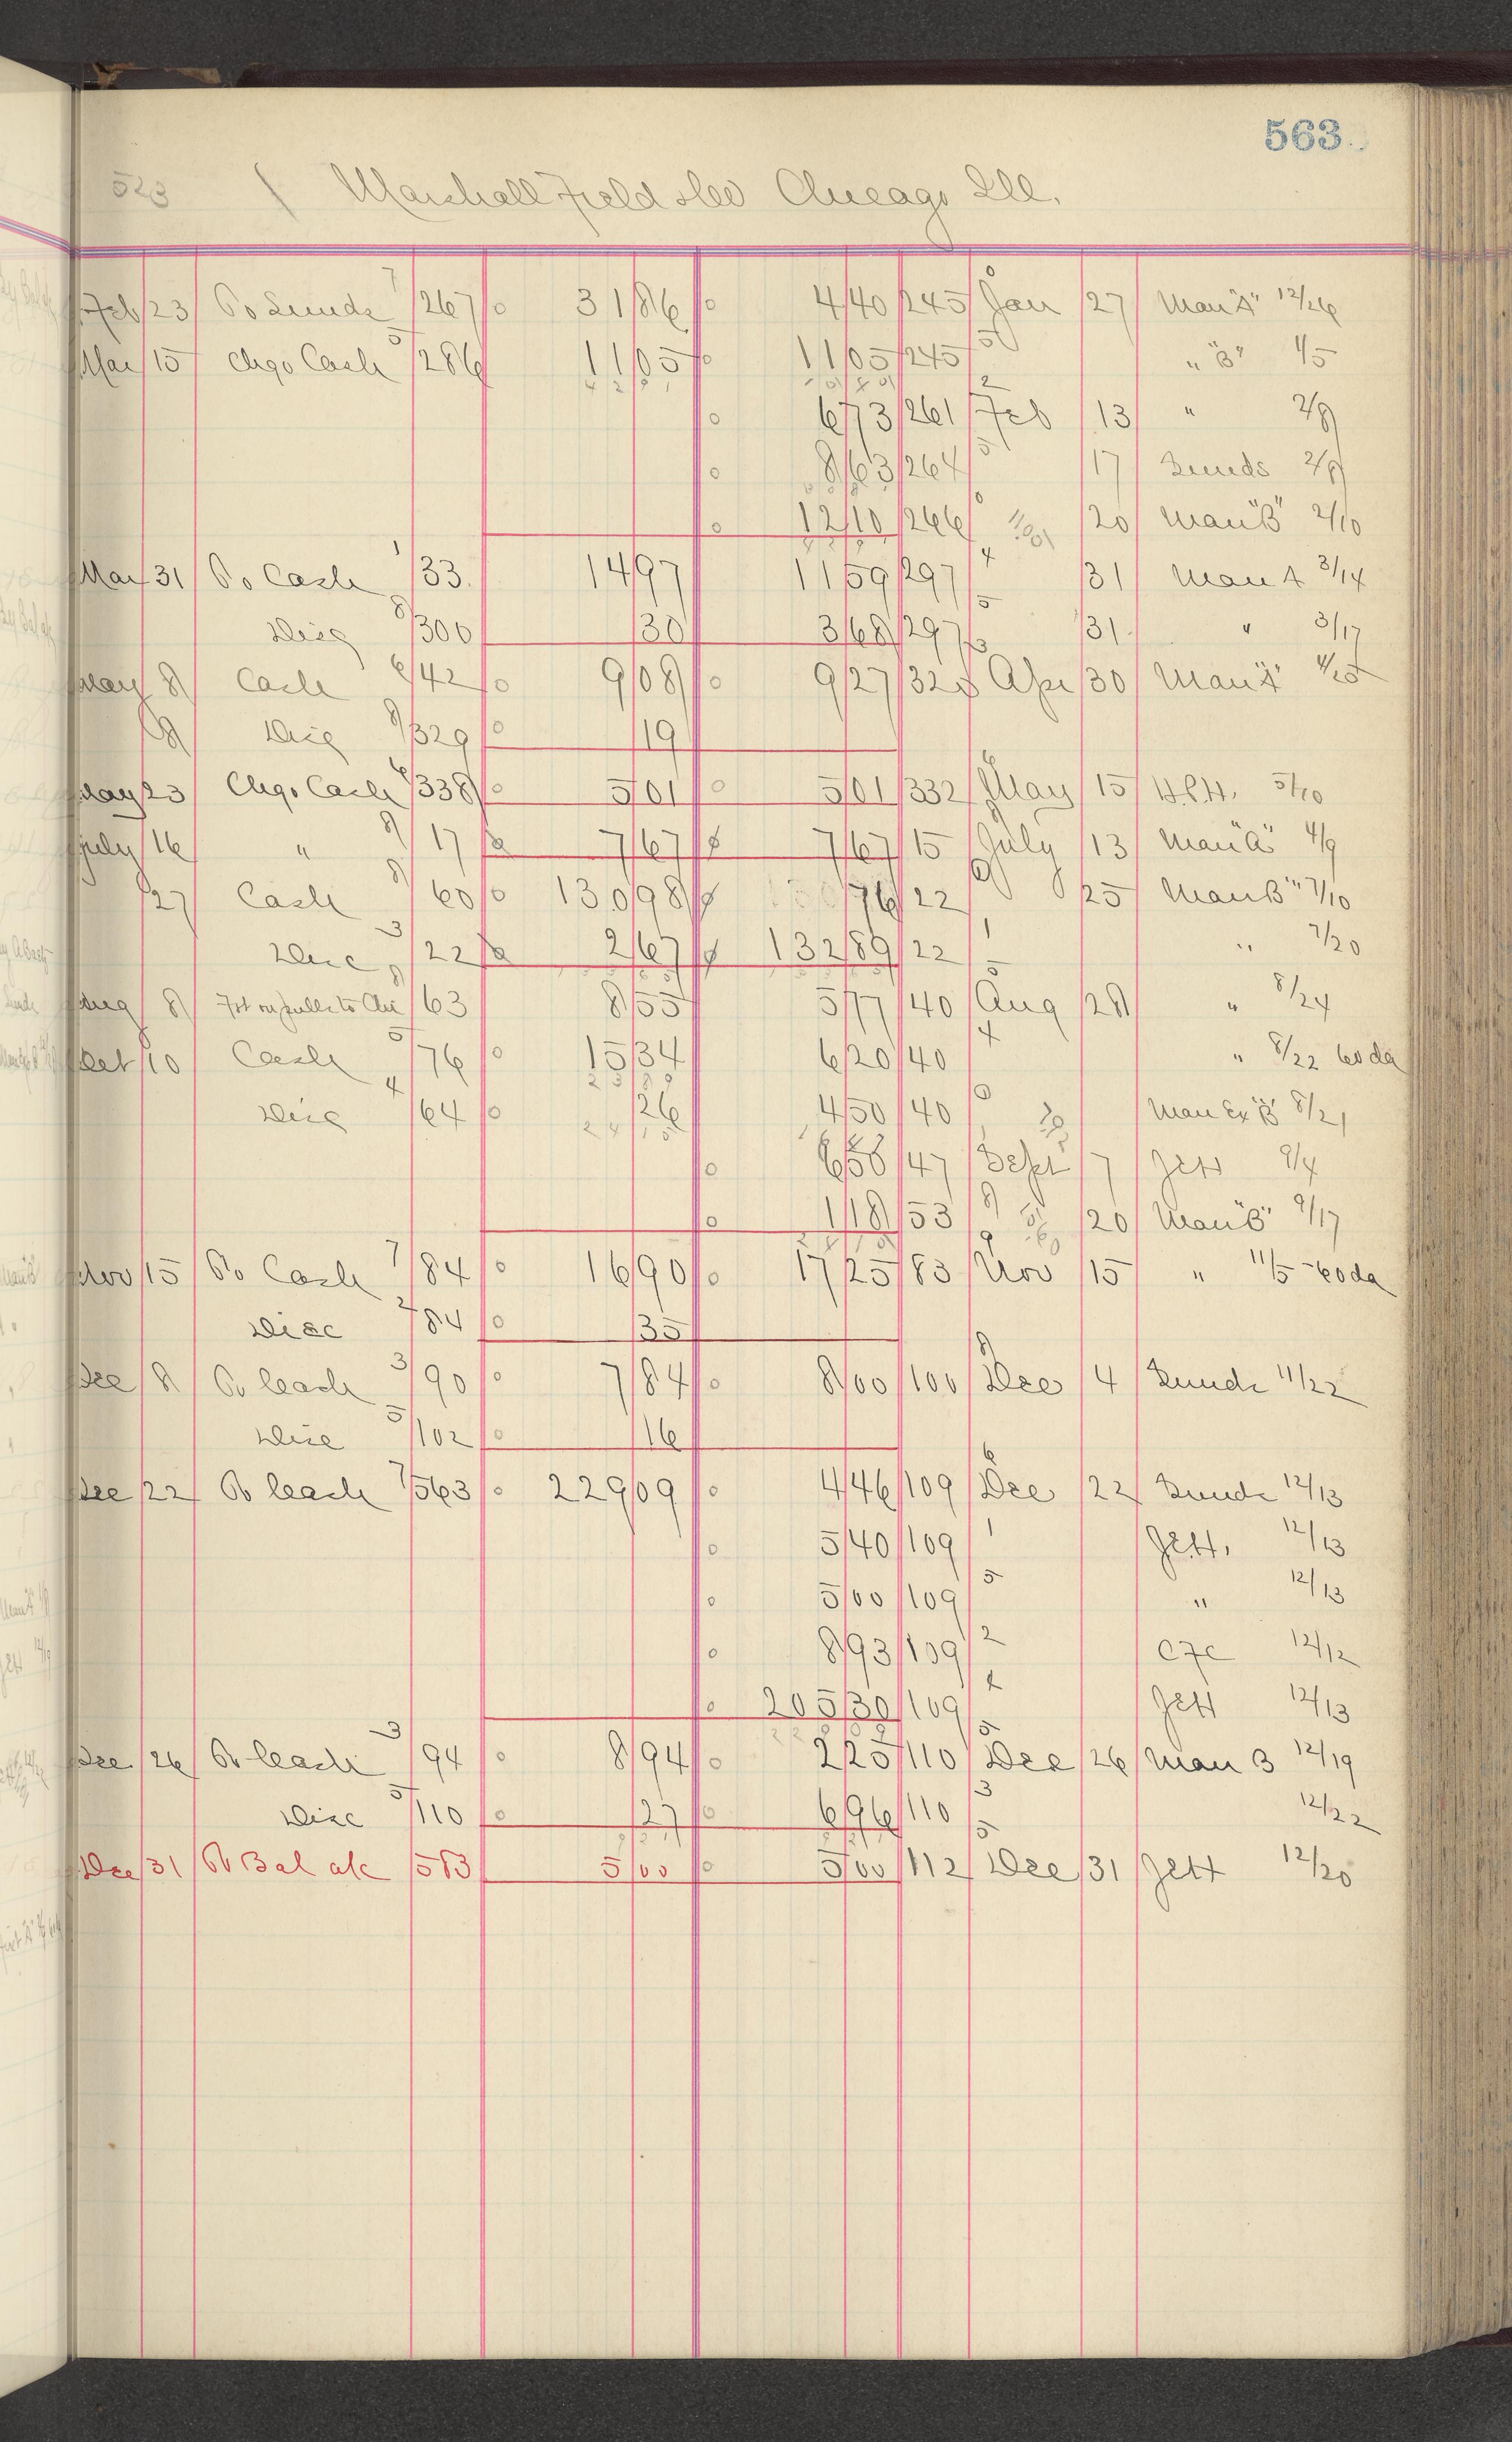 563
523 Marshall Field & Co Chicago Ill.
Feb 23 To Sunds 7/267 31 86 4 40 245 Jan 27 Man "A" 12/26
Mar 15 Chgo Cash 5/286 11 05 11 05 245 " "B" 1/5
6 73 261 Feb 13 " 2/9
8 63 264 17 Sunds 2/9
12 10 266 20 Man "B" 2/10
Mar 31 To Cash 1/33 14 97 11 59 297 31 Man A 3/14
Disc 8/300 30 3 68 297 31 " 3/17
May 8 Cash 6/42 9 08 9 27 32 Apr 30 Man "A" 4/25
8 Disc 8/329 19
May 23 Chgo Cash 6/338 5 01 5 01 332 May 15 5/10
July 16 " 8/17 7 67 7 67 15 July 13 Man "A" 4/9
27 Cash 8/60 130 98 76 22 25 Man B" 7/10
Disc 3/22 2 67 132 89 22 " 7/20
Aug 8 63 8 55 5 77 40 Aug 28 " 8/24
Oct 10 Cash 5/76 15 34 6 20 40 " 8/22 60 da
Disc 4/64 26 4 50 40 Man Ex "B" 8/21
6 58 47 Sept 7 JEH 9/4
1 18 53 20 Man "B" 9/17
Nov 15 To Cash 7/84 16 90 17 25 83 Nov 15 " 11/5 - 60 da
Disc 7/84 35
Dec 8 To Cash 3/90 7 84 8 00 100 Dec 4 Sunds 11/22
Disc 5/102 16
Dec 22 To Cash 7/563 229 09 4 46 109 Dec 22 Sunds 12/13
5 40 109 JEH. 12/13
5 00 109 " 12/13
8 93 109 CFC 12/12
205 30 109 JEH 12/13
Dec 26 To Cash 3/94 8 94 2 25 110 Dec 26 Man B 12/19
Disc 5/110 27 6 96 110 12/22
Dec 31 To Bal a/c 563 5 00 5 00 112 Dec 31 JEH 12/20